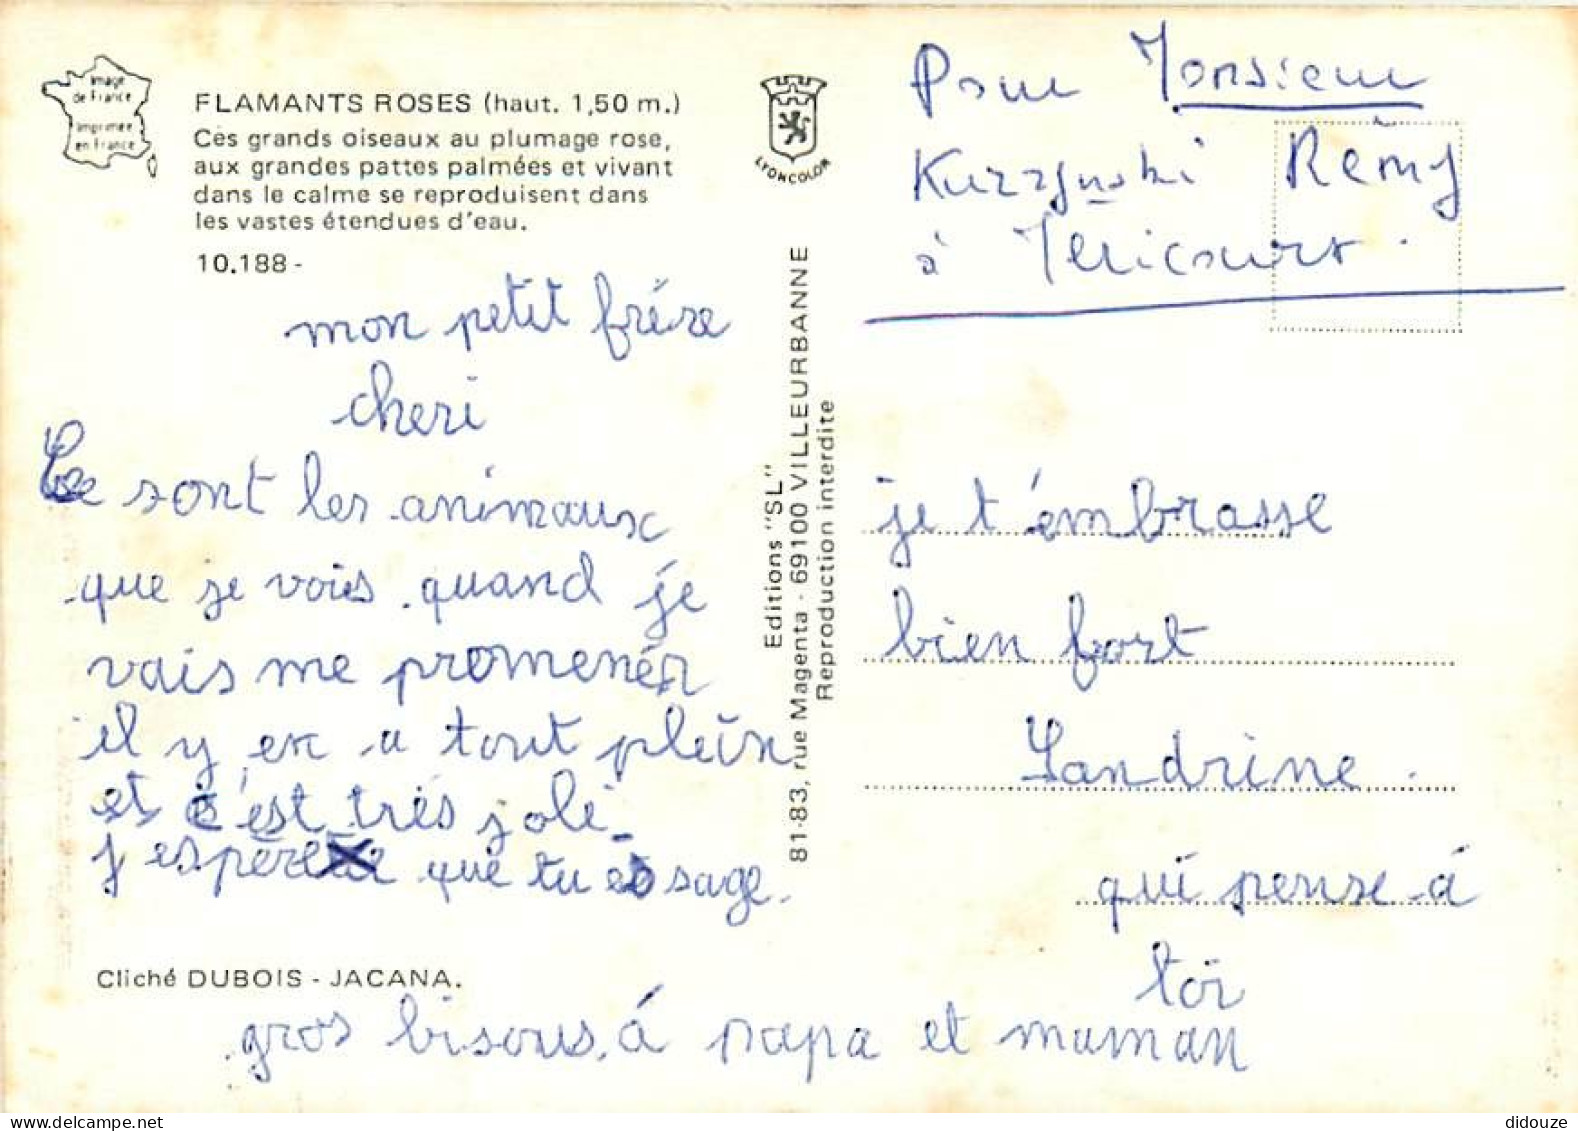 Image
de France
Imprimée
en France
FLAMANTS ROSES (haut. 1,50 m.)
Ces grands oiseaux au plumage rose,
aux grandes pattes palmées et vivant
dans le calme se reproduisent dans
les vastes étendues d'eau.
10.188 -
mon petit frére
cheri
Ce sont les animaux
que je vois quand je
vais me promenér
il y en a tout plein
et c'est trés joli
j espère que tu es sage.
Cliché DUBOIS - JACANA.
gros bisous á papa et maman
LYONCOLOR
Editions "SL"
81-83, rue Magenta - 69100 VILLEURBANNE
Reproduction interdite
Pour Monsieur
Rémy
à Méricourt.
je t'émbrasse
bien fort
Sandrine.
qui pense á
toi
didouze